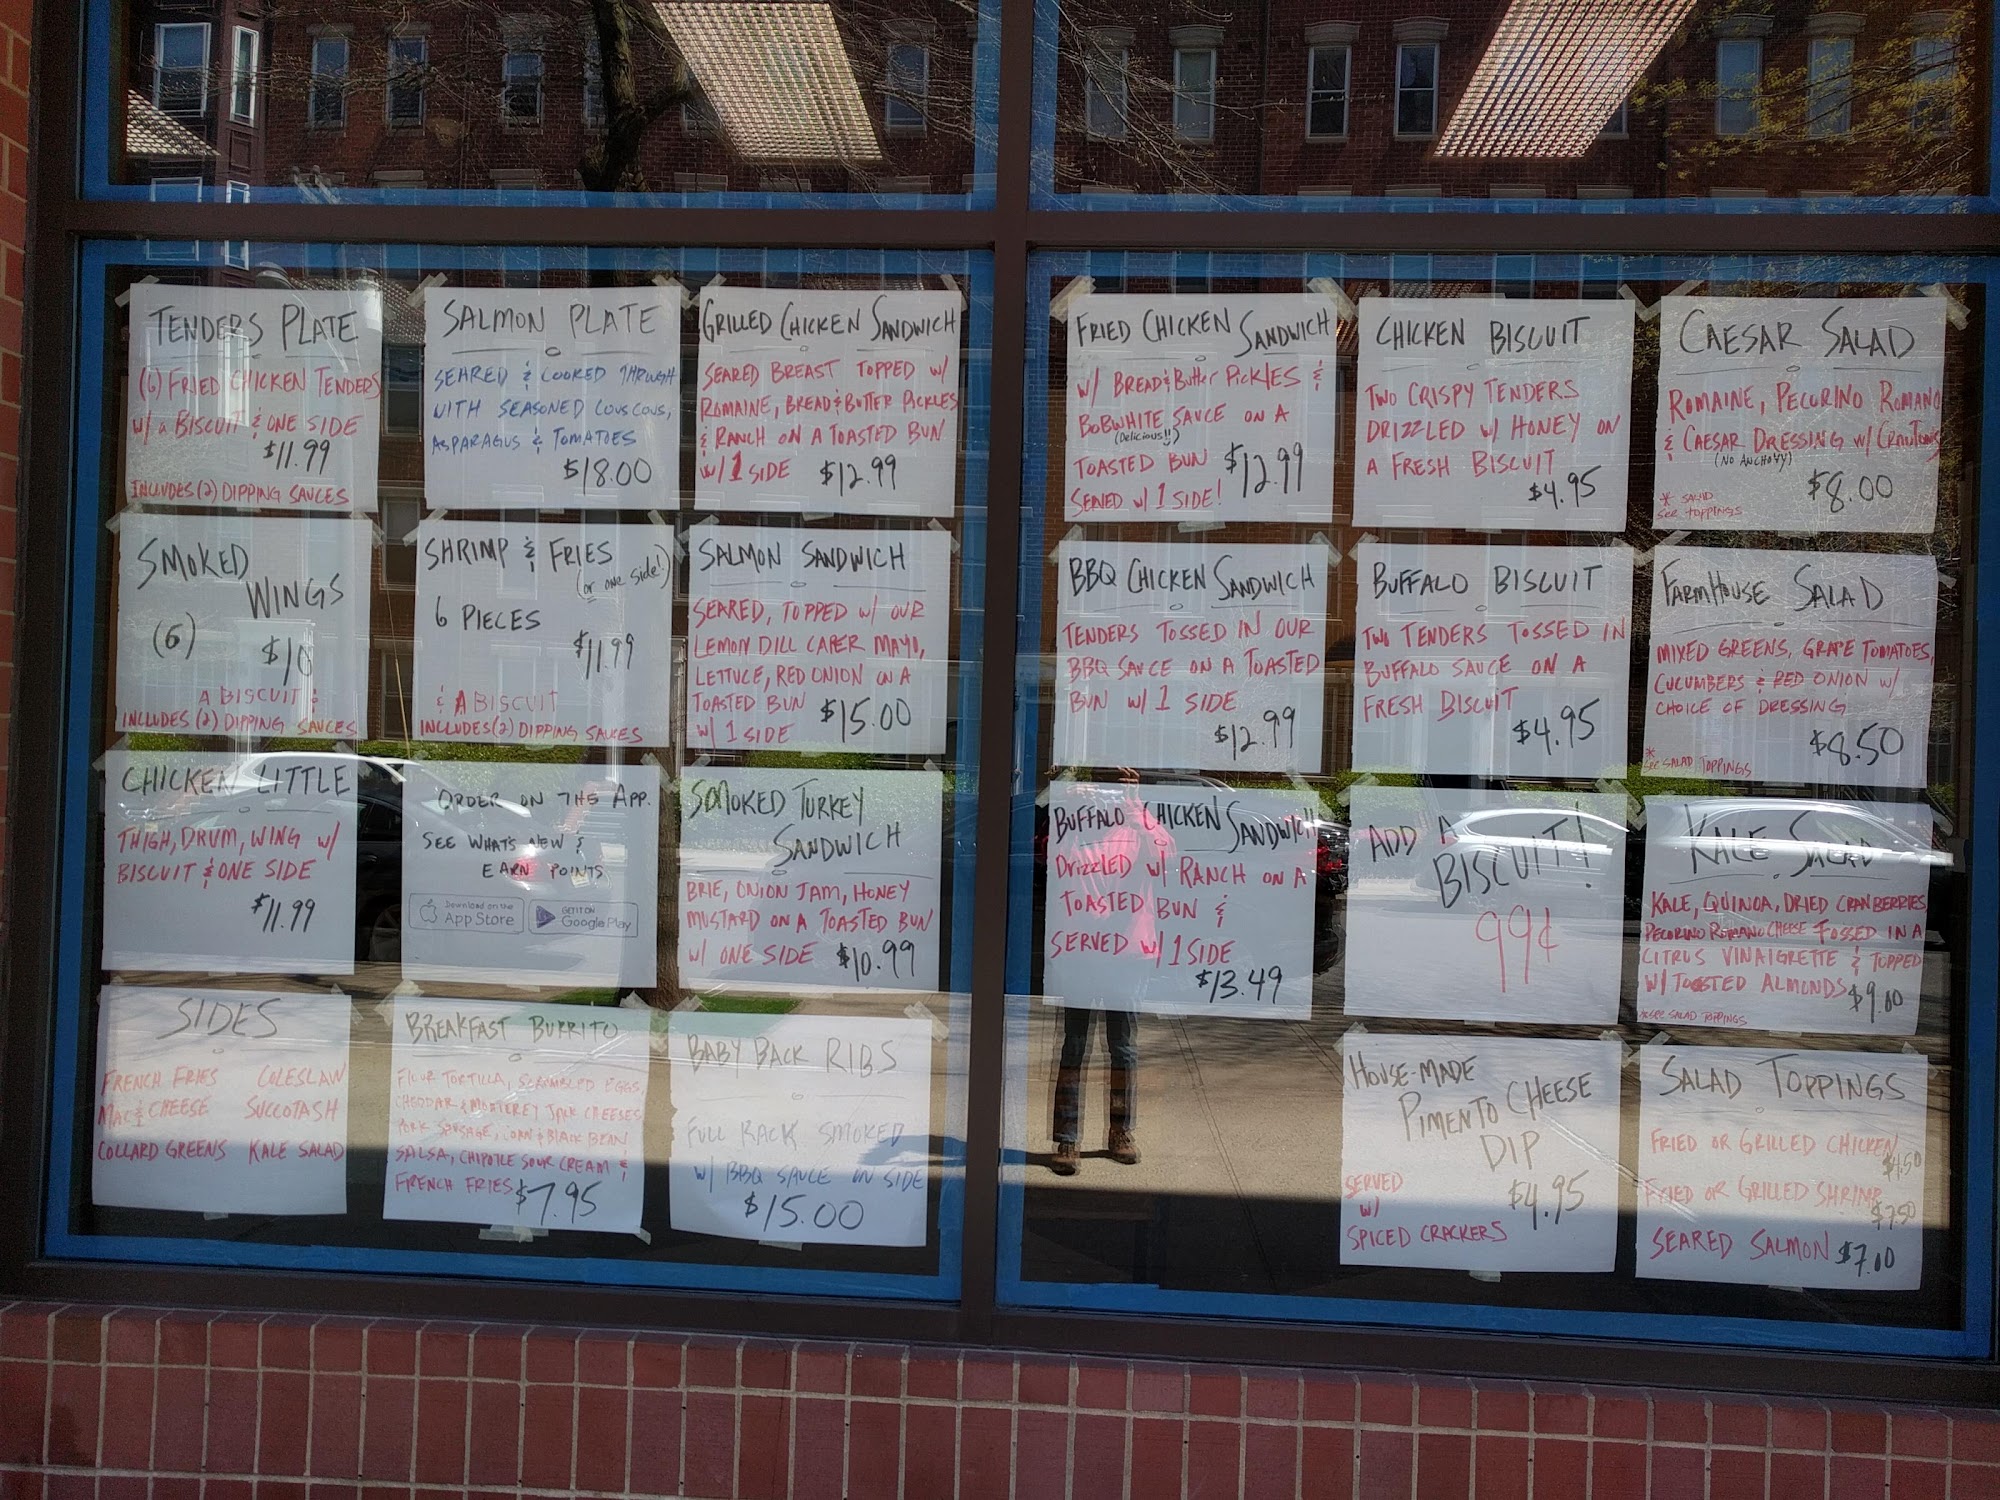 TENDERS PLATE
(6) FRIED CHICKEN TENDERS
w/ a BISCUIT & ONE SIDE
$11.99
INCLUDES (2) DIPPING SAUCES
SALMON PLATE
SEARED & COOKED THROUGH
WITH SEASONED COUS COUS,
ASPARAGUS & TOMATOES
$18.00
GRILLED CHICKEN SANDWICH
SEARED BREAST TOPPED w/
ROMAINE, BREAD & BUTTER PICKLES
& RANCH ON A TOASTED BUN
w/ 1 SIDE $12.99
SMOKED
WINGS
(6) $10
A BISCUIT &
INCLUDES (2) DIPPING SAUCES
SHRIMP & FRIES
(or one side!)
6 PIECES
$11.99
& A BISCUIT
INCLUDES (2) DIPPING SAUCES
SALMON SANDWICH
SEARED, TOPPED w/ OUR
LEMON DILL CAPER MAYO,
LETTUCE, RED ONION ON A
TOASTED BUN
w/ 1 SIDE $15.00
CHICKEN LITTLE
THIGH, DRUM, WING w/
BISCUIT & ONE SIDE
$11.99
ORDER ON THE APP.
SEE WHATS NEW &
EARN POINTS
Download on the
App Store
GET IT ON
Google Play
SMOKED TURKEY
SANDWICH
BRIE, ONION JAM, HONEY
MUSTARD ON A TOASTED BUN
w/ ONE SIDE $10.99
SIDES
FRENCH FRIES COLESLAW
MAC & CHEESE SUCCOTASH
COLLARD GREENS KALE SALAD
BREAKFAST BURRITO
FLOUR TORTILLA, SCRAMBLED EGGS,
CHEDDAR & MONTEREY JACK CHEESES
PORK SAUSAGE, CORN & BLACK BEAN
SALSA, CHIPOTLE SOUR CREAM &
FRENCH FRIES $7.95
BABY BACK RIBS
FULL RACK SMOKED
w/ BBQ SAUCE ON SIDE
$15.00
FRIED CHICKEN SANDWICH
w/ BREAD & Butter PICKLES &
BOBWHITE SAUCE ON A
(Delicious!!)
TOASTED BUN $12.99
SERVED w/ 1 SIDE!
CHICKEN BISCUIT
TWO CRISPY TENDERS
DRIZZLED w/ HONEY ON
A FRESH BISCUIT
$4.95
CAESAR SALAD
ROMAINE, PECORINO ROMANO
& CAESAR DRESSING w/ CROUTONS
(NO ANCHOVY)
$8.00
* SALAD
See TOPPINGS
BBQ CHICKEN SANDWICH
TENDERS TOSSED IN OUR
BBQ SAUCE ON A TOASTED
BUN w/ 1 SIDE
$12.99
BUFFALO BISCUIT
TWO TENDERS TOSSED IN
BUFFALO SAUCE ON A
FRESH BISCUIT
$4.95
FARMHOUSE SALAD
MIXED GREENS, GRAPE TOMATOES,
CUCUMBERS & RED ONION w/
CHOICE OF DRESSING
$8.50
* See SALAD TOPPINGS
BUFFALO CHICKEN SANDWICH
Drizzled w/ RANCH ON A
TOASTED BUN &
SERVED w/ 1 SIDE
$13.49
ADD A
BISCUIT!
99¢
KALE SALAD
KALE, QUINOA, DRIED CRANBERRIES,
PECORINO ROMANO CHEESE TOSSED IN A
CITRUS VINAIGRETTE & TOPPED
W/ TOASTED ALMONDS $9.00
*See SALAD TOPPINGS
HOUSE-MADE
PIMENTO CHEESE
DIP
SERVED $4.95
w/
SPICED CRACKERS
SALAD TOPPINGS
FRIED OR GRILLED CHICKEN
$4.50
FRIED OR GRILLED SHRIMP
$7.50
SEARED SALMON $7.00